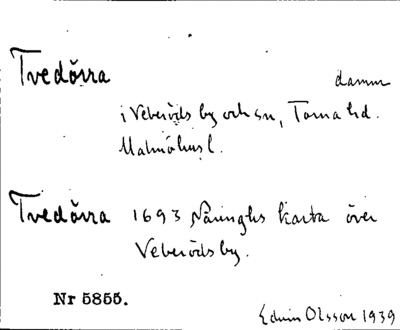 Tvedörra damm
i Veberöds by och sn, Torna hd.
Malmöhus l.
Tvedörra 1693 Nåringhs karta över
Veberöds by.
Nr 5855.
Edvin Olsson 1939